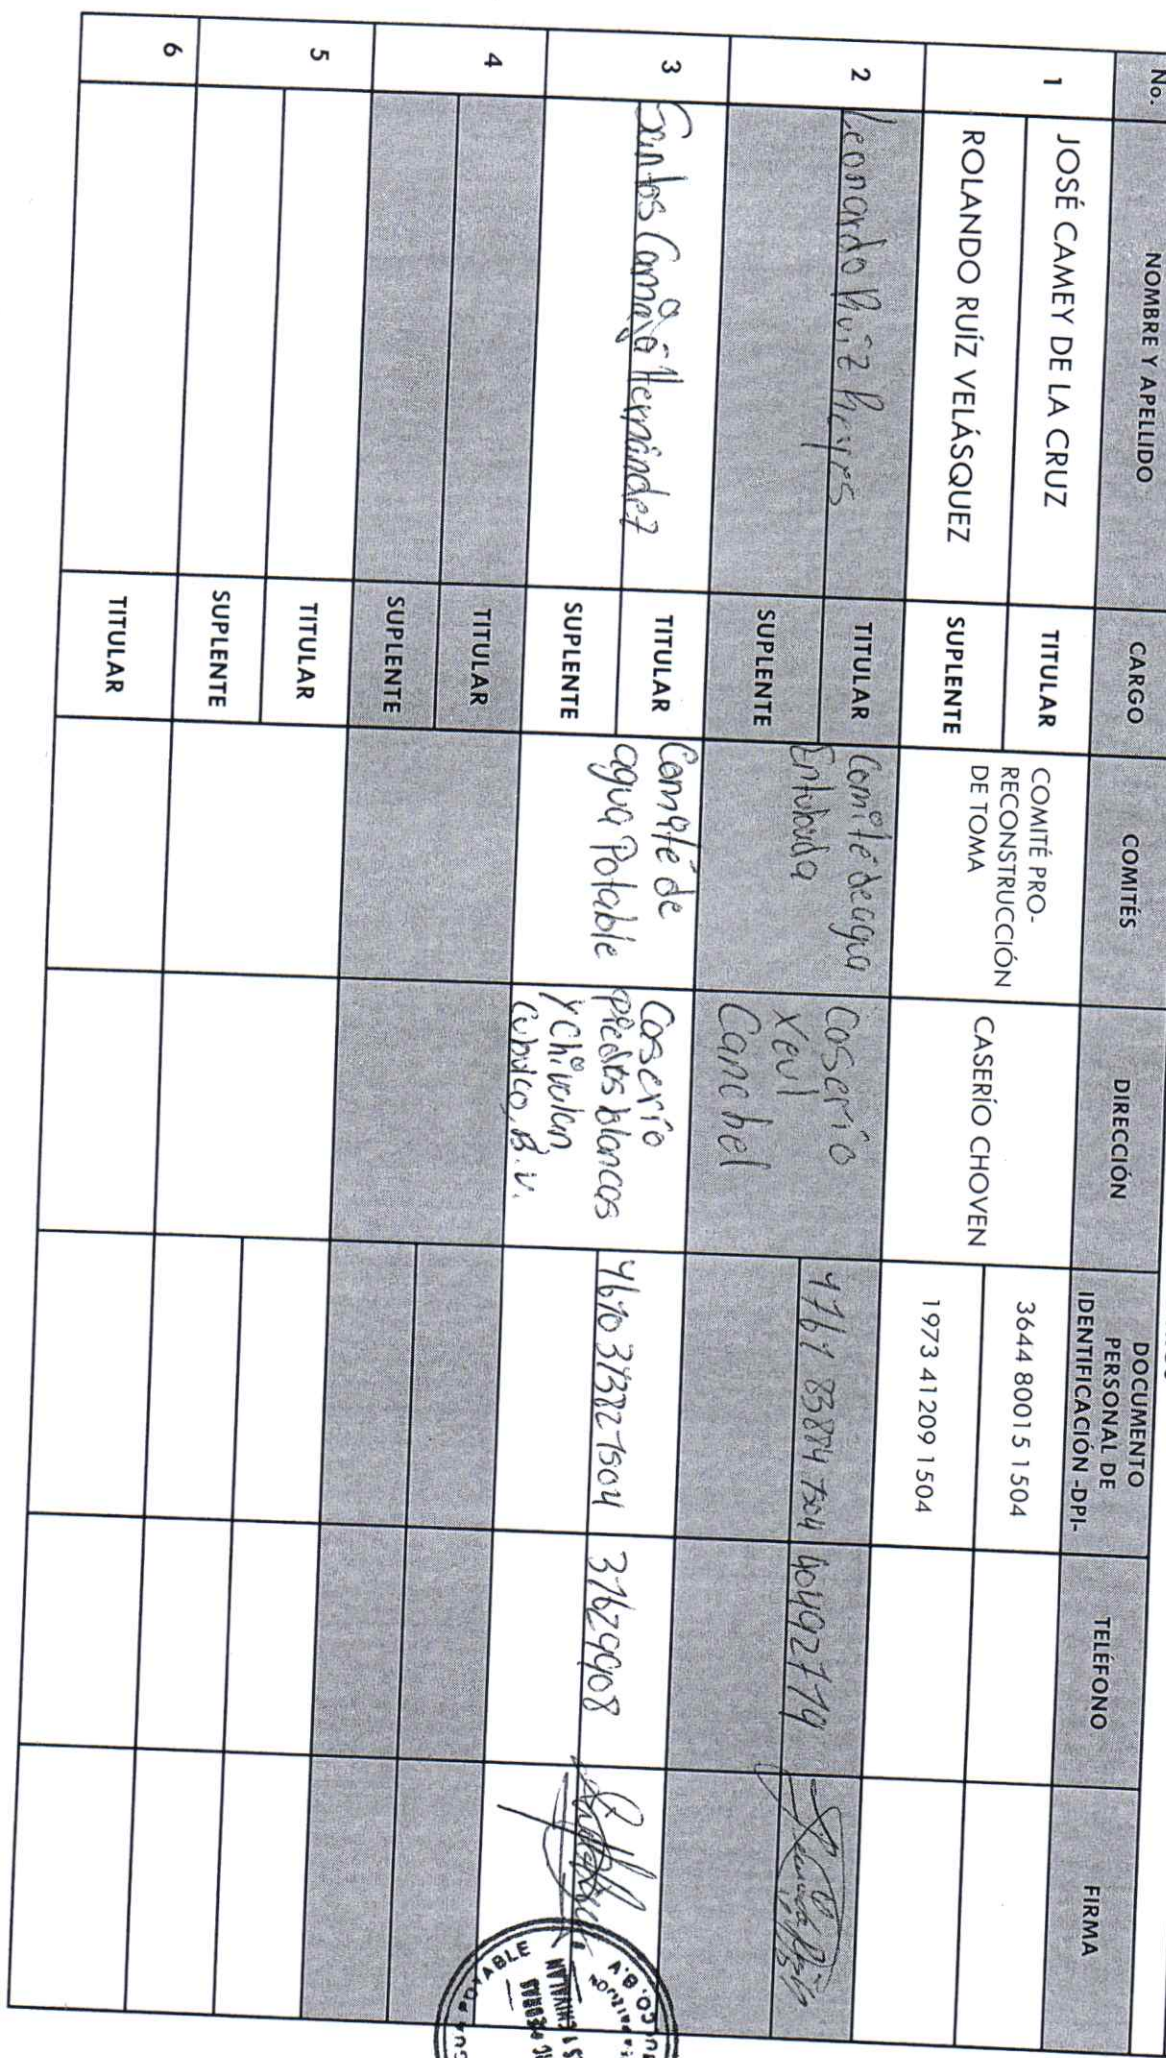 No.
NOMBRE Y APELLIDO
CARGO
COMITÉS
DIRECCIÓN
DOCUMENTO
PERSONAL DE
IDENTIFICACIÓN -DPI-
TELÉFONO
FIRMA
1
JOSÉ CAMEY DE LA CRUZ
TITULAR
COMITÉ PRO-
RECONSTRUCCIÓN
DE TOMA
CASERÍO CHOVEN
3644 80015 1504
ROLANDO RUÍZ VELÁSQUEZ
SUPLENTE
1973 41209 1504
2
Leonardo Ruíz Reyes
TITULAR
Comité de agua
Entubada
Caserío
Xeul
Canchel
1761 83884 1504
40492779
SUPLENTE
3
Santos Camajá Hernández
TITULAR
Comité de
agua Potable
Caserío
piedras blancas
y Chivalan
Cubulco, B.V.
37629908
SUPLENTE
4
TITULAR
SUPLENTE
5
TITULAR
SUPLENTE
6
TITULAR